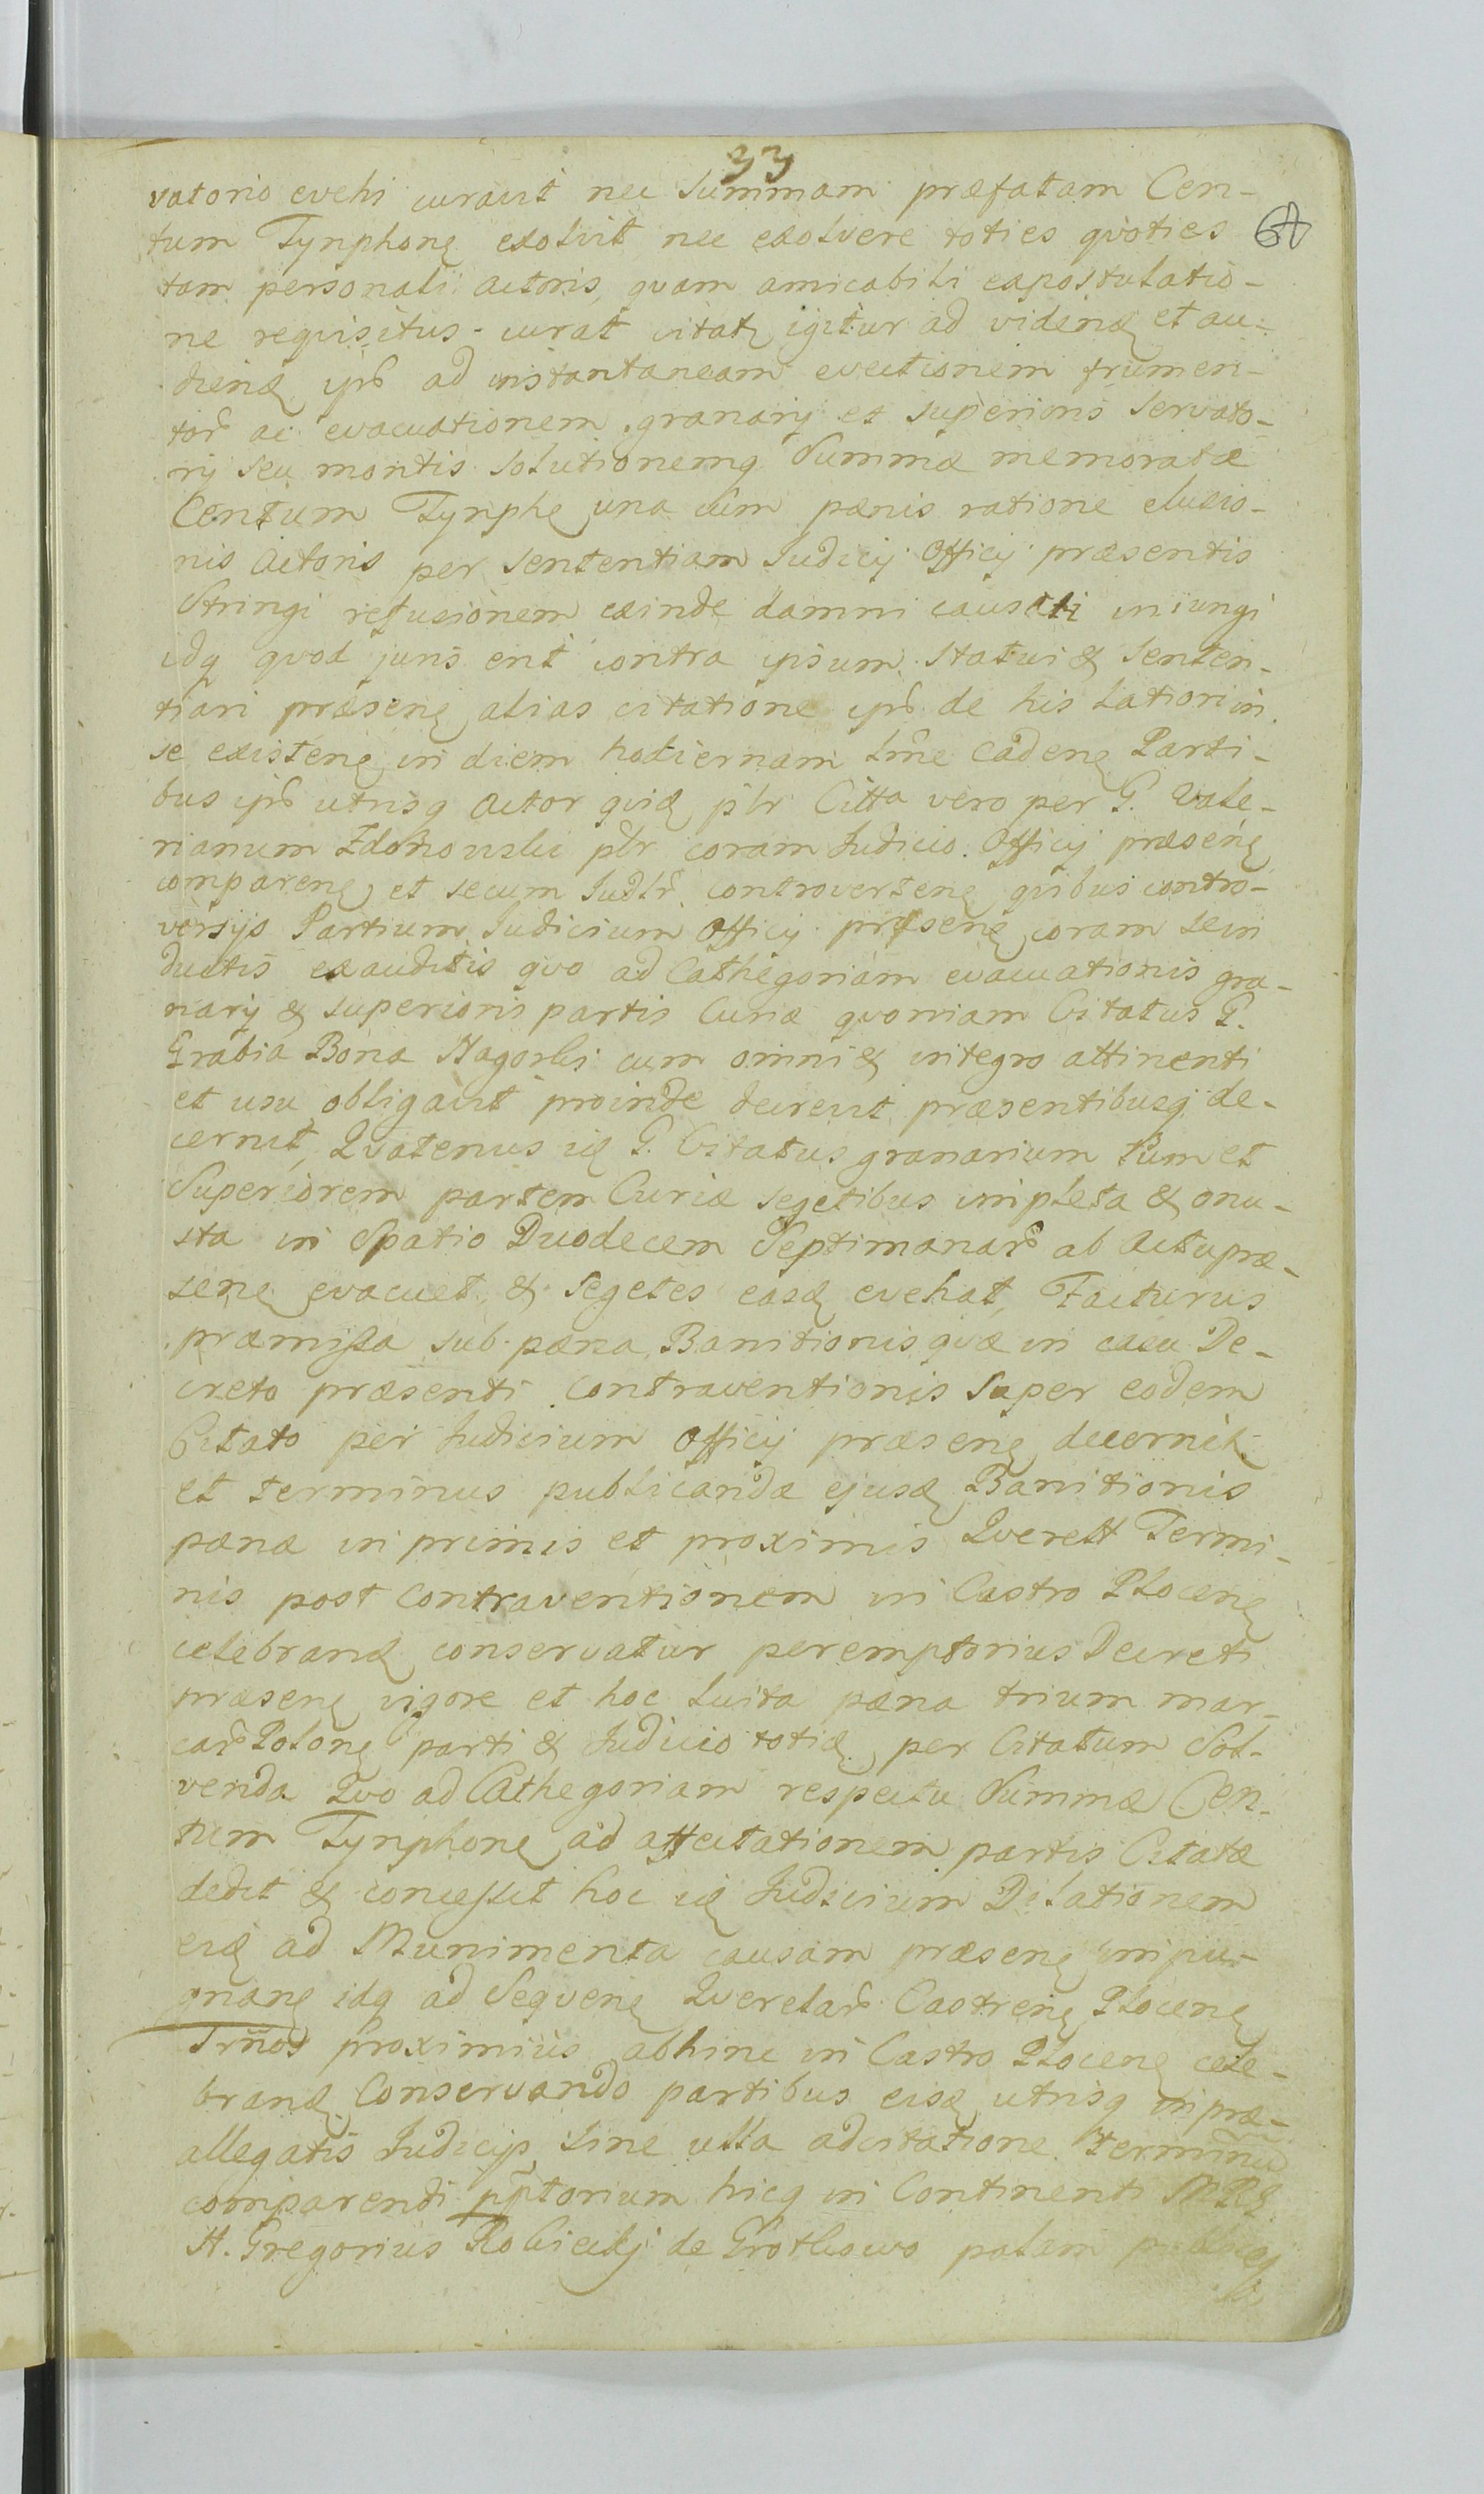 33
vatorio evehi curavit nec Summam præfatam Cen-
tum Tynphonę exolvit nec exolvere toties qvoties
64
tam personali actoris, qvam amicabili expostulatio-
ne reqvisitus curat citatę igitur ad videndę et au-
diendę ipsõ ad instantaneam evectionem frumen-
torõ ac evacuationem granarij et superioris Servato-
rij seu montis solutionemq Summæ memoratæ
Centum Tynphę una cum pænis ratione elusio-
nis Actoris per Sententiam Judicij Officij præsentis
Stringi refusionem exinde damni causati iniungi
idq qvod juris erit contra ipsum Statui & Senten-
tiari præsenę alias citatione ipsõ de his latiori in
se existenę in diem hodiernam lm̃e cadenę Parti-
bus ipsõ utrisq Actor qvidę plr Citta vero per G. Vale-
rianum Zdonowski plr coram Judicio Officij præsenę
comparenę et secum Judlr̃ controvertenę qvibus contro-
versijs Partium Judicium Officij præsenę coram se in
ductis exauditis qvo ad Cathegoriam evacuationis gra-
narij & superioris partis Curiæ qvoniam Citatus G.
Grabia Bona Nagorki cum omni & integro attinenti
et usu obligavit proinde decrevit præsentibusq de-
cernit, Qvatenus idę G. Citatus granarium tum et
Superiorem partem Curiæ segetibus impleta & onu-
sta in Spatio Duodecem Septimanarõ ab Actu præ-
senę evacuet & Segetes easdę evehat, Facturus
præmissa sub pæna Banitionis qvæ in casu De-
creto præsenti contraventionis Super eodem
Citato per Judicium Officij præsenę decernit
et terminus publicandæ ejusdę Banitionis
pænæ in primis et proximis Qverell Termi-
nis post contraventionem in Castro Plocenę
celebrandę conservatur peremptorius Decreti
præsenę vigore et hoc luita pæna trium mar-
carõ Polonę parti & Judicio totidę per Citatum Sol-
venda Qvo ad Cathegoriam respectu Summæ Cen-
tum Tynphonę ad affectationem partis Citatæ
dedit & concessit hoc idę Judicium Dilationem
eidę ad Munimenta causam præsenę impu-
gnanę idq ad Seqvenę Qverelarõ Castrenę Plocenę
Trm̃os proximius abhinc in Castro Plocenę cele-
brandę Conservando partibus eisdę utrisq in præ-
allegatis Judicijs sine ulla adcitatione terminũ
comparendi pp̃torium hicq in Continenti
N. Gregorius Robicki de Grotkowo palam